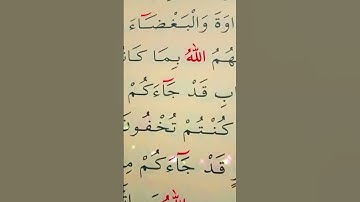 اوَةَ وَالْبَغْضَآءَ
هُمُ اللّٰهُ بِمَا كَانُ
بِ قَدْ جَآءَكُمْ
كُنْتُمْ تُخْفُونَ
قَدْ جَآءَكُمْ مِ